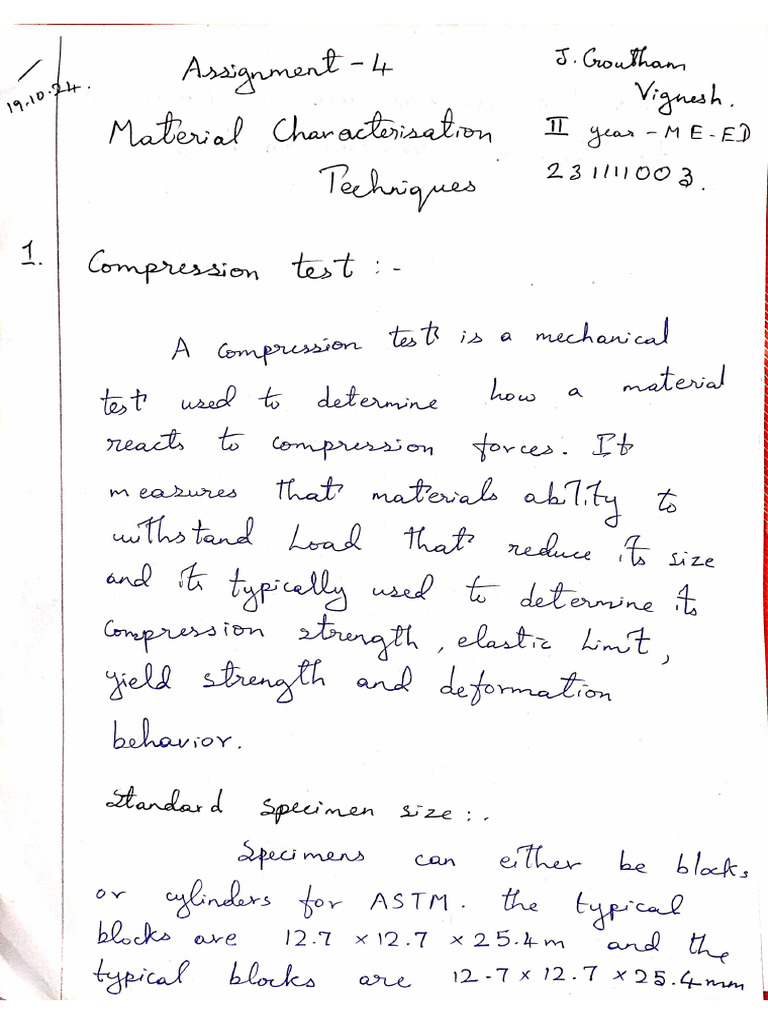 19.10.24.
Assignment - 4
J. Groutham
Vignesh.
Material Characterisation
II year - ME - ED
Techniques
231111003.
1. Compression test :-
A compression test is a mechanical
test used to determine how a material
reacts to compression forces. It
measures that materials ability to
withstand Load that reduce its size
and its typically used to determine its
compression strength, elastic limit,
yield strength and deformation
behavior.
Standard specimen size :.
Specimens can either be blocks
or cylinders for ASTM. the typical
blocks are 12.7 × 12.7 × 25.4m and the
typical blocks are 12.7 × 12.7 × 25.4mm